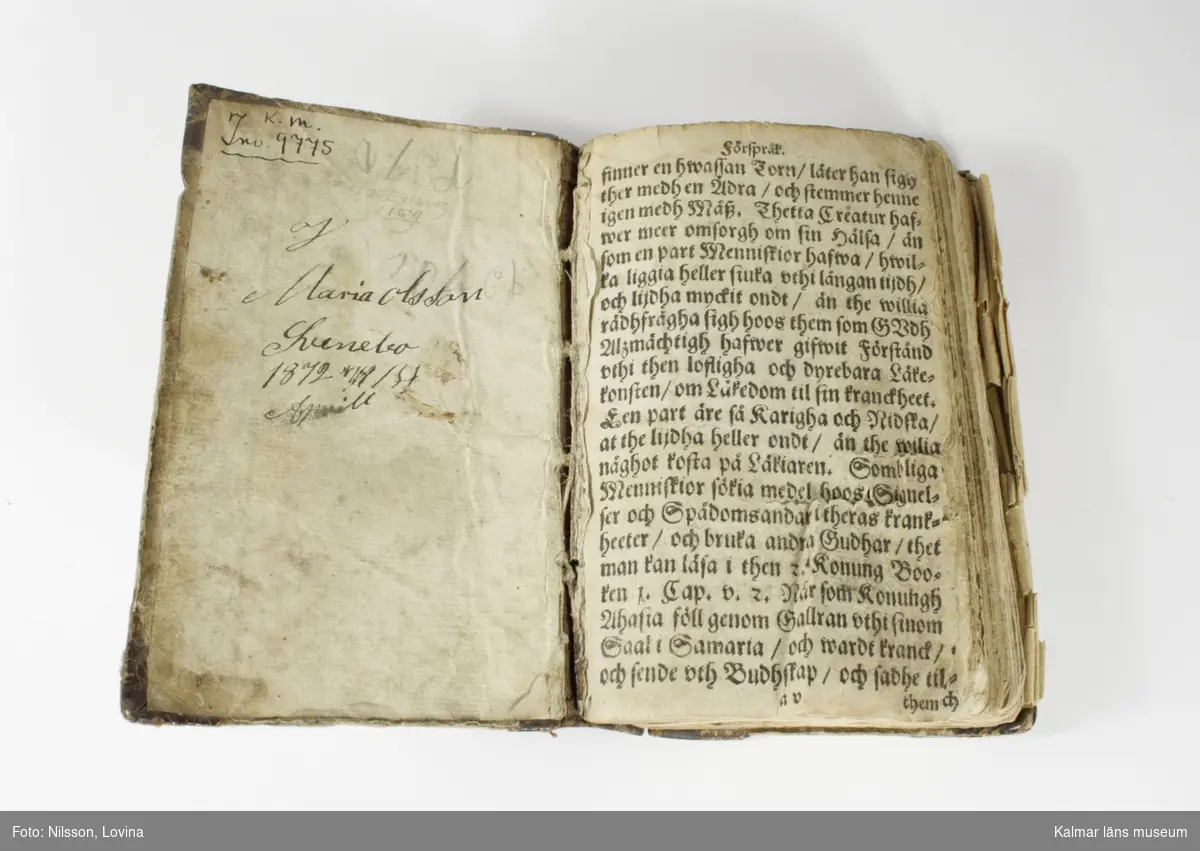 K. M.
Inv. 9775
Maria Olsson
Svenebo
1872
Aprill
Förspråk.
finner en hwassan Torn / låter han sigh
ther medh en Adra / och stemmer henne
igen medh Mäß. Thetta Creatur haf-
wer meer omsorgh om sin Hälsa / än
som en part Menniskior hafwa / hwil-
ka liggia heller siuka vthi långan tijdh /
och lijdha myckit ondt / än the willia
rådhfrågha sigh hoos them som GVdh
Alzmächtigh hafwer gifwit Förstånd
vthi then lofligha och dyrebara Läke-
konsten / om Läkedom til sin kranckheet.
Een part äre så Karigha och Nidska /
at the lijdha heller ondt / än the wilia
någhot kosta på Läkiaren. Somliga
Menniskior sökia medel hoos Signel-
ser och Spådomsandar i theras krank-
heeter / och bruka andra Gudhar / thet
man kan läsa i then 2. Konung Boo-
ken 1. Cap. v. 2. När som Konungh
Ahasia föll genom Gallran vthi sinom
Saal i Samaria / och wardt kranck /
och sende vth Budhskap / och sadhe til
a v them
Foto: Nilsson, Lovina
Kalmar läns museum